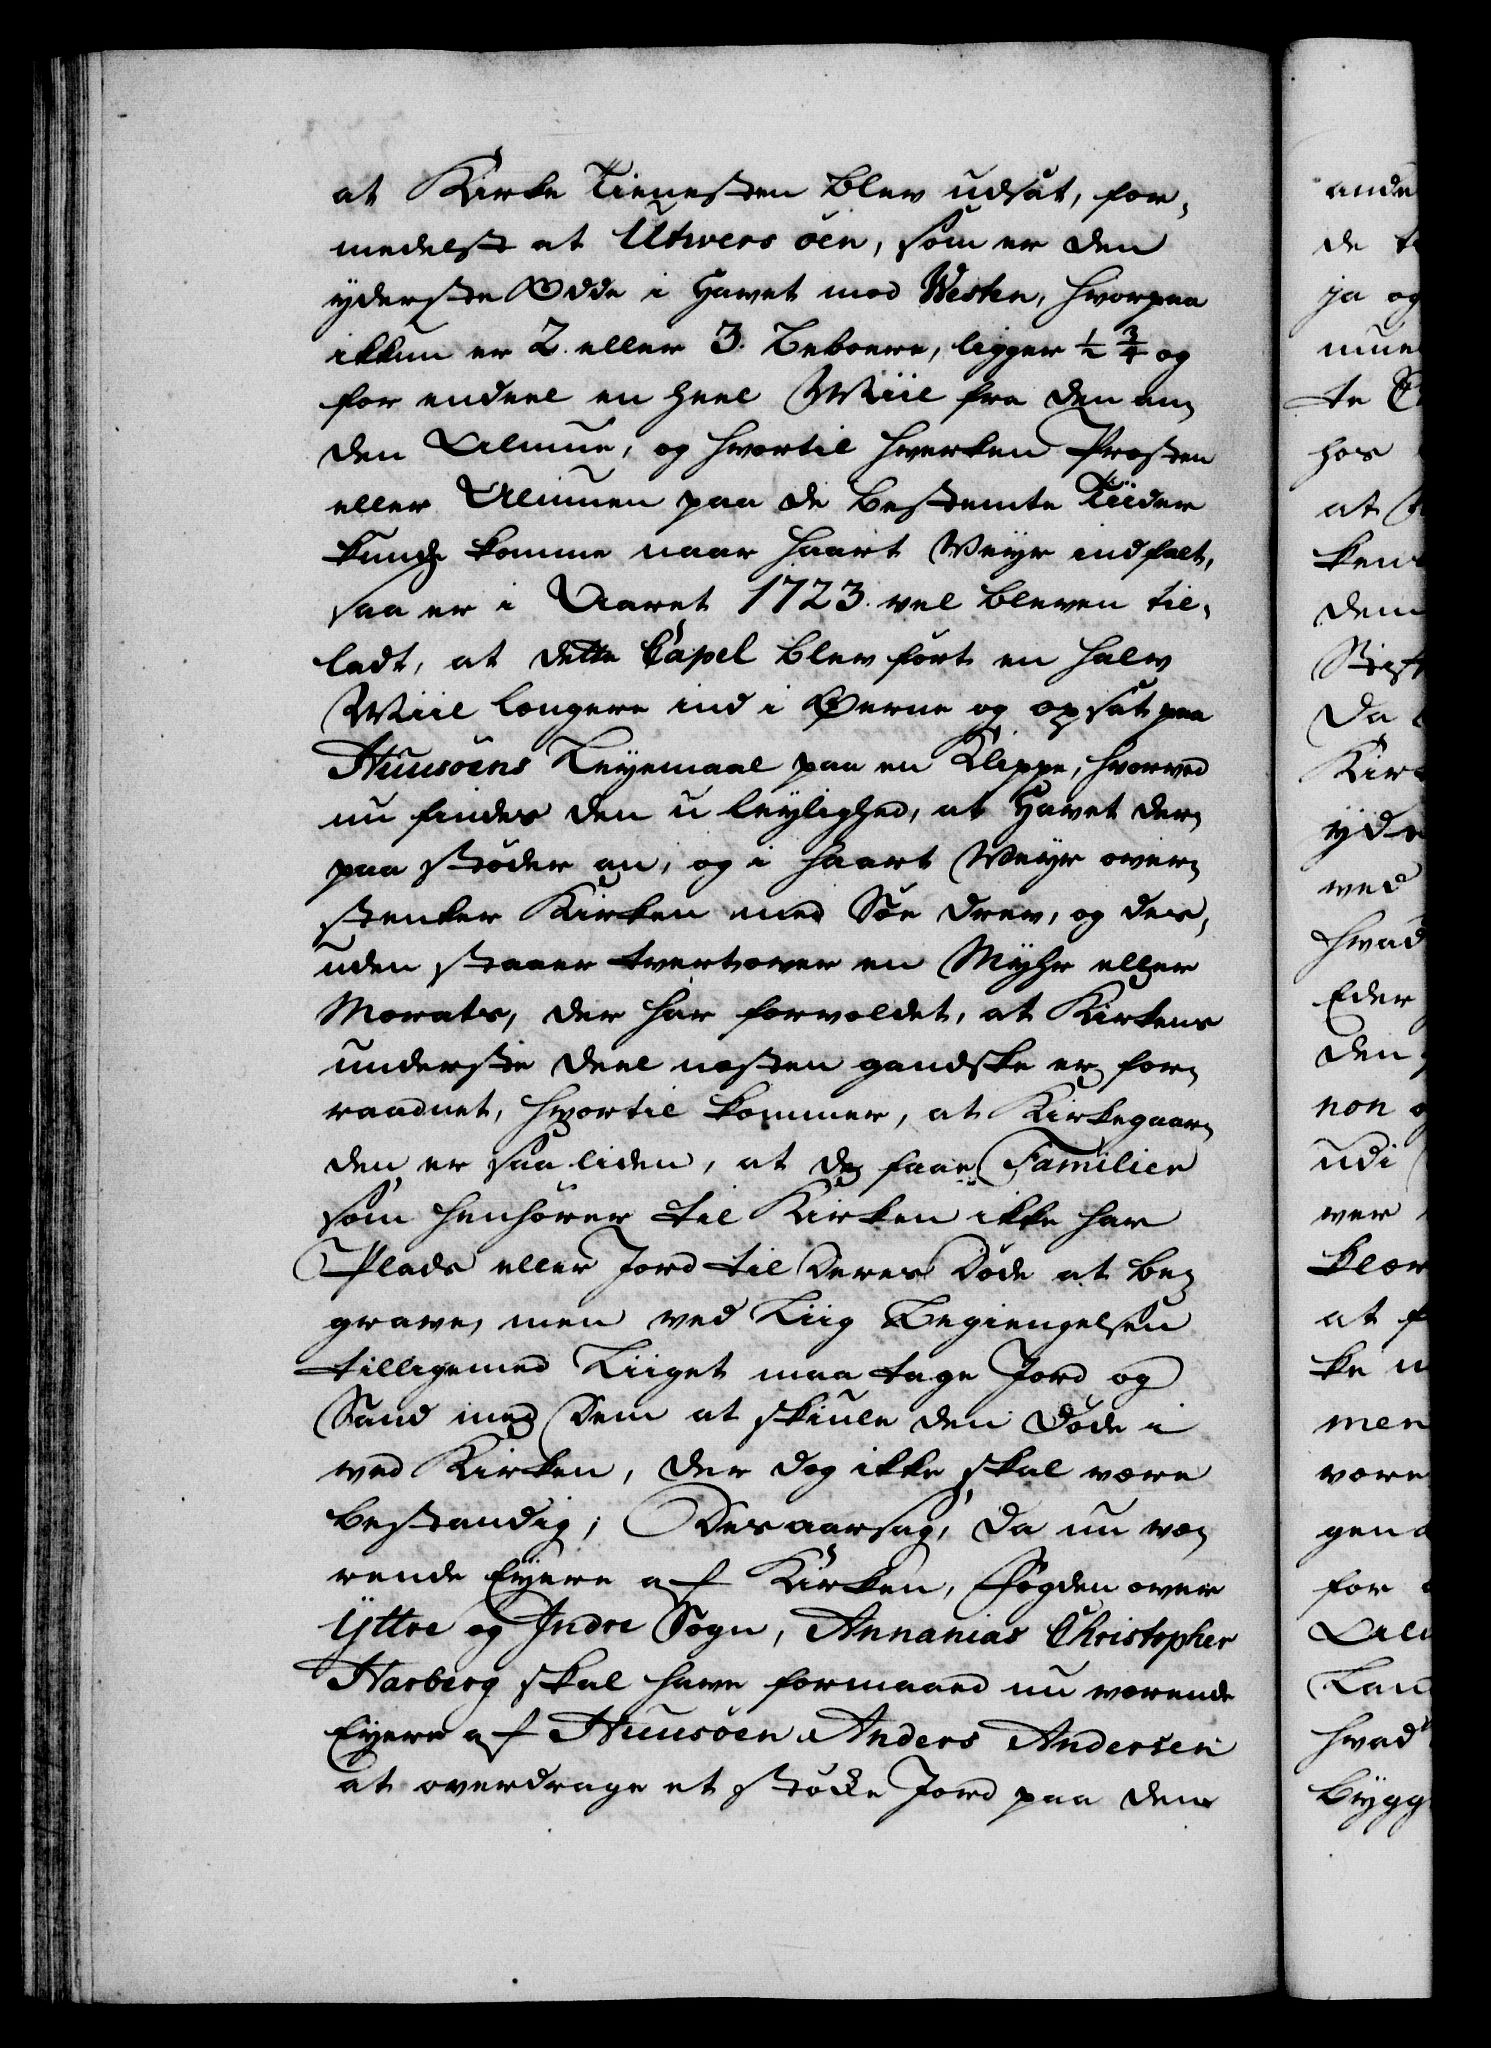 at Kirke Tienesten blev udsat, for-
medelst at Utwers öen, som er den
yderste Odde i Havet mod Westen, hvorpaa
ikkun er 2. eller 3. Beboere, ligger ½ ¾ og
for endeel en heel Miil fra den an-
den Almue, og hvortil hverken Præsten
eller Almuen paa de bestemte Tiider
kunde komme naar haart Weyr indfalt,
saa er i Aaret 1723. vel bleven til-
ladt, at dette Capel blev fört en halv
Miil længere ind i Öerne og opsat paa
Huusöens Leyemaal paa en Klippe, hvorved
nu findes den u leylighed, at Havet der-
paa støder an, og i haart Weyr over-
stenker Kirken med Söe drev, og des-
uden staaer tvertover en Myhr eller
Morats, der har forvoldet, at Kirkens
underste Deel næsten gandske er for-
raadnet, hvortil kommer, at Kirkegaar-
den er saa liden, at de faae Familier
som henhörer til Kirken ikke har
Plads eller Jord til Deres Döde at be-
grave, men ved Liig Begiengelsen
tilligemed Liiget maa tage Jord og
Sand med Dem at skiule den Döde i
ved Kirken, der dog ikke skal være
bestandig; Desaarsag, da nu væ-
rende Eyere af Kirken, Fogden over
Yttre og Indre Sogn, Annanias Christopher
Harberg skal have formaaed nu værende
Eyere af Huusöen Anders Andersen
at overdrage et støcke Jord paa den
ande
de t
ja og
mue
te
hos
at
ken
dem
Stift
da
Kir
yde
ved
hvad
Eder
den
non
udi
ver
klær
at f
ke
men
være
gen
for
Alm
Land
hvad
bygg